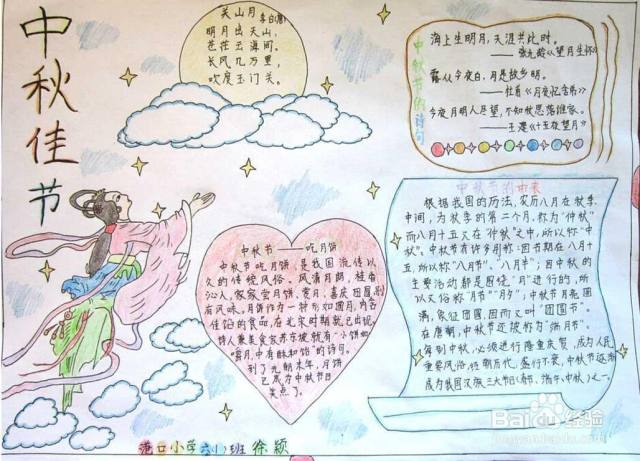 中秋佳节
关山月 李白(唐)
明月出天山,
苍茫云海间。
长风几万里,
吹度玉门关。
中秋节的诗句
海上生明月,天涯共此时。
——张九龄《望月怀远》
露从今夜白,月是故乡明。
——杜甫《月夜忆舍弟》
今夜月明人尽望,不知秋思落谁家。
——王建《十五夜望月》
中秋节的由来
根据我国的历法,农历八月在秋季
中间,为秋季的第二个月,称为“仲秋”
而八月十五又在“仲秋”之中,所以称“中
秋”。中秋节有许多别称:因节期在八月十
五,所以称“八月节”、“八月半”;因中秋的
主要活动都是围绕“月”进行的,所
以又俗称“月节”“月夕”;中秋节月亮圆
满,象征团圆,因而又叫“团圆节”。
在唐朝,中秋节还被称为“端月节”。
中秋节——吃月饼
中秋节吃月饼,是我国流传以
久的传统风俗。风清月朗,桂香
沁人,家家尝月饼,赏月,喜庆团圆,别
有风味。月饼作为一种形如圆月,内含
佳馅的食品,在北宋时期就已出现。
诗人兼美食家苏东坡就有“小饼如
嚼月,中有酥和饴”的诗句。
到了元明末年,月饼
已成为中秋节日
美点了。
港口小学六(1)班 徐颖
Baidu经验
jingyan.baidu.com